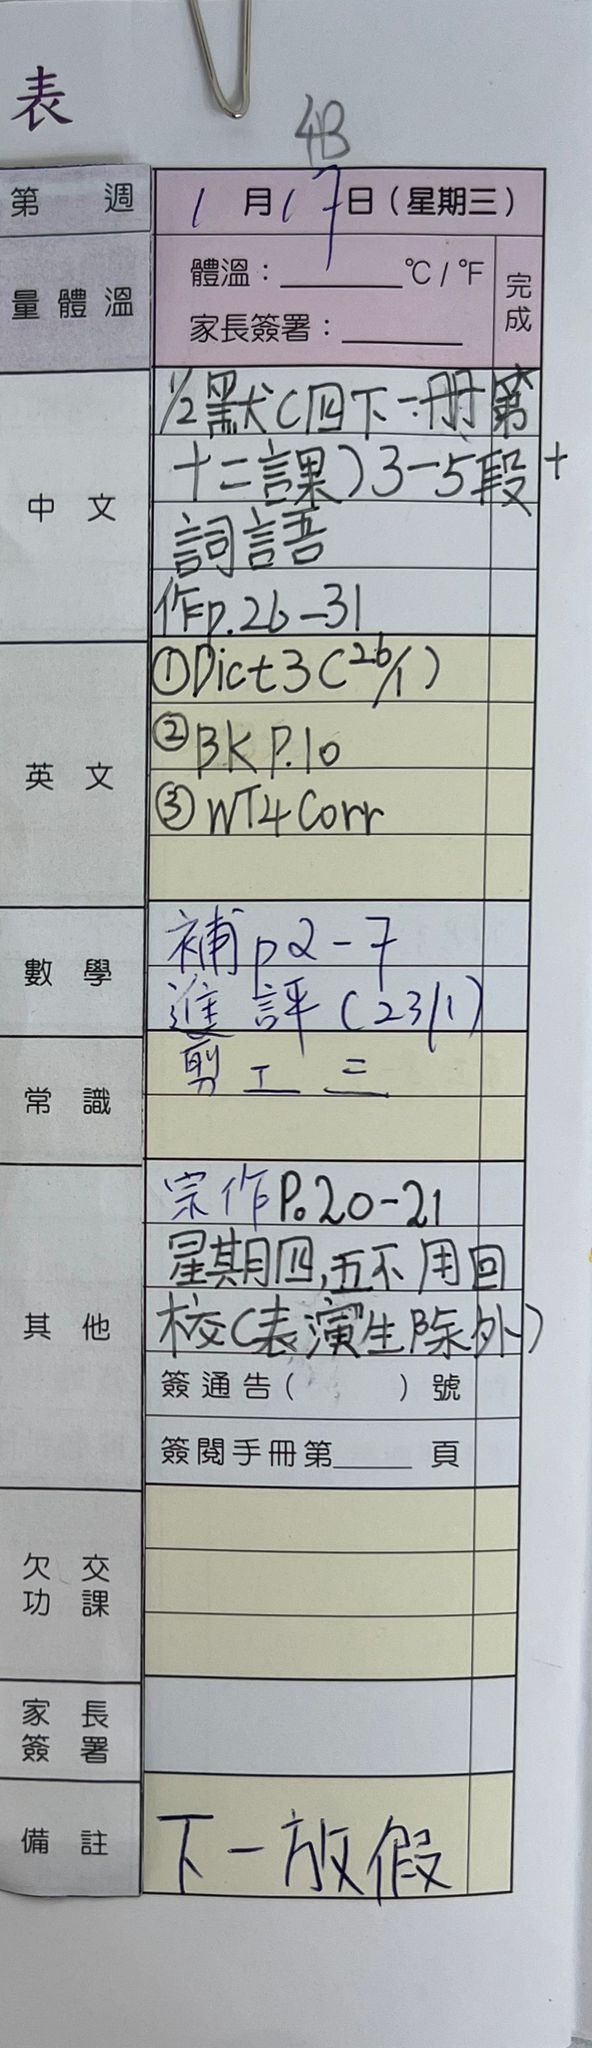 表
4B
第 週
1月17日(星期三)
量體溫
體溫:______°C / °F
完成
家長簽署:______
中文
1/2默(四下一冊第
十二課)3-5段+
詞語
作p.26-31
英文
①Dict 3 (26/1)
②BK P.10
③WT4 Corr
數學
補p2-7
進評(23/1)
常識
剪工三
其他
宗作P.20-21
星期四,五不用回
校(表演生除外)
簽通告( )號
簽閱手冊第____頁
欠交
功課
家長
簽署
備註
下一放假